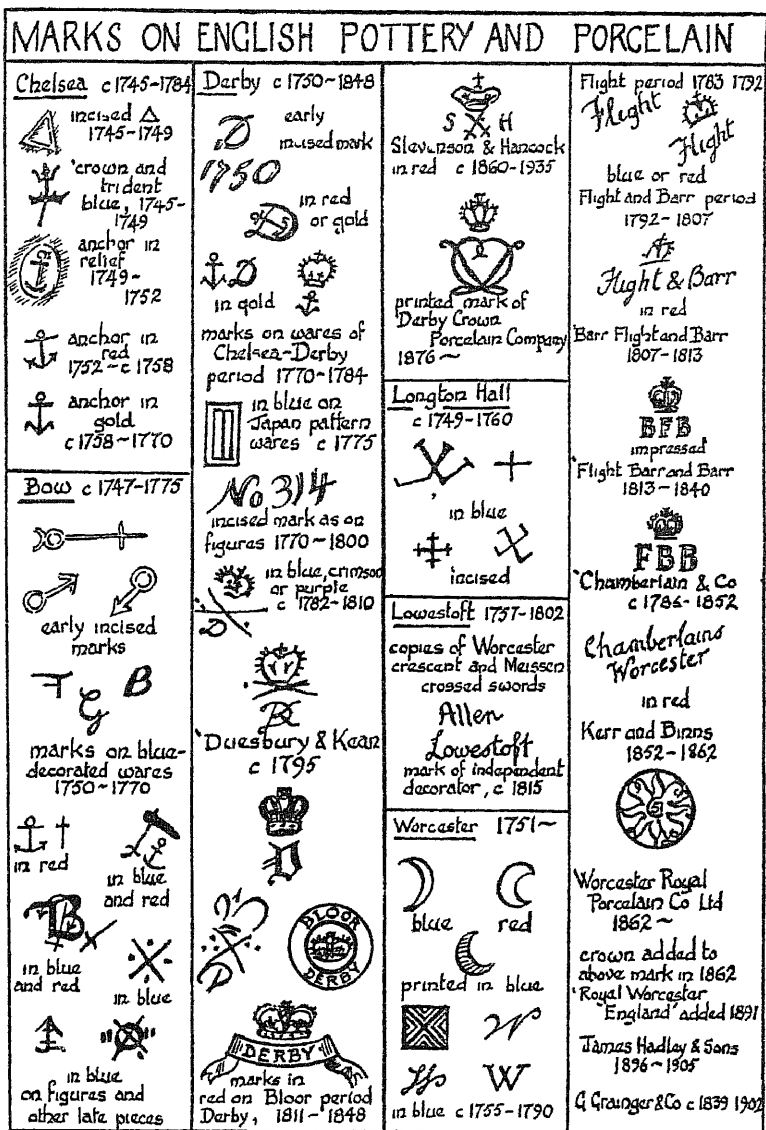 MARKS ON ENGLISH POTTERY AND PORCELAIN
Chelsea c1745-1784
incised Δ
1745-1749
crown and
trident
blue, 1745-
1749
anchor in
relief
1749-
1752
anchor in
red
1752-c 1758
anchor in
gold
c1758-1770
Bow c1747-1775
early incised
marks
T G B
marks on blue-
decorated wares
1750-1770
in red
in blue
and red
B
in blue
and red
in blue
in blue
on figures and
other late pieces
Derby c1750-1848
D
early
incised mark
1750
in red
or gold
D
in gold
marks on wares of
Chelsea-Derby
period 1770-1784
in blue on
Japan pattern
wares c 1775
No 314
incised mark as on
figures 1770-1800
in blue, crimson
or purple
c 1782-1810
D
DK
Duesbury & Kean
c 1795
D
D
BLOOR
DERBY
DERBY
marks in
red on Bloor period
Derby, 1811-1848
S H
Stevenson & Hancock
in red c 1860-1935
printed mark of
Derby Crown
Porcelain Company
1876~
Longton Hall
c1749-1760
in blue
incised
Lowestoft 1757-1802
copies of Worcester
crescent and Meissen
crossed swords
Allen
Lowestoft
mark of independent
decorator, c 1815
Worcester 1751~
blue red
printed in blue
W
W
in blue c1755-1790
Flight period 1783 1792
Flight
Flight
blue or red
Flight and Barr period
1792-1807
Flight & Barr
in red
Barr Flight and Barr
1807-1813
BFB
impressed
Flight Barr and Barr
1813-1840
FBB
Chamberlain & Co
c 1786-1852
Chamberlains
Worcester
in red
Kerr and Binns
1852-1862
51
Worcester Royal
Porcelain Co Ltd
1862~
crown added to
above mark in 1862
'Royal Worcester
England' added 1891
James Hadley & Sons
1896-1905
G Grainger & Co c 1839 1902